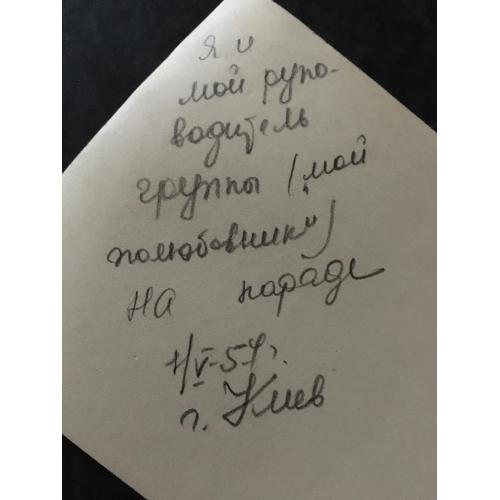 я и
мой руко-
водитель
группы (мой
полюбовник")
на параде
1/V-57г.
г. Киев